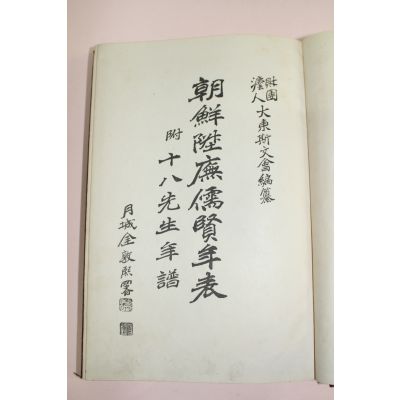 財團
法人大東斯文會編纂
朝鮮陞廡儒賢年表
附 十八先生年譜
月城金敦熙署